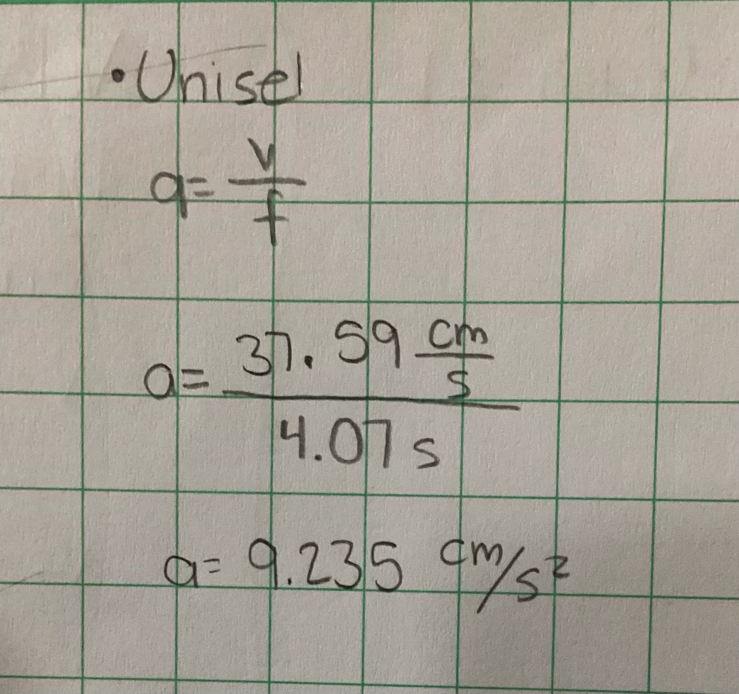 • Unisel
a = v/f
a = 37.59 cm/s / 4.07 s
a = 9.235 cm/s²